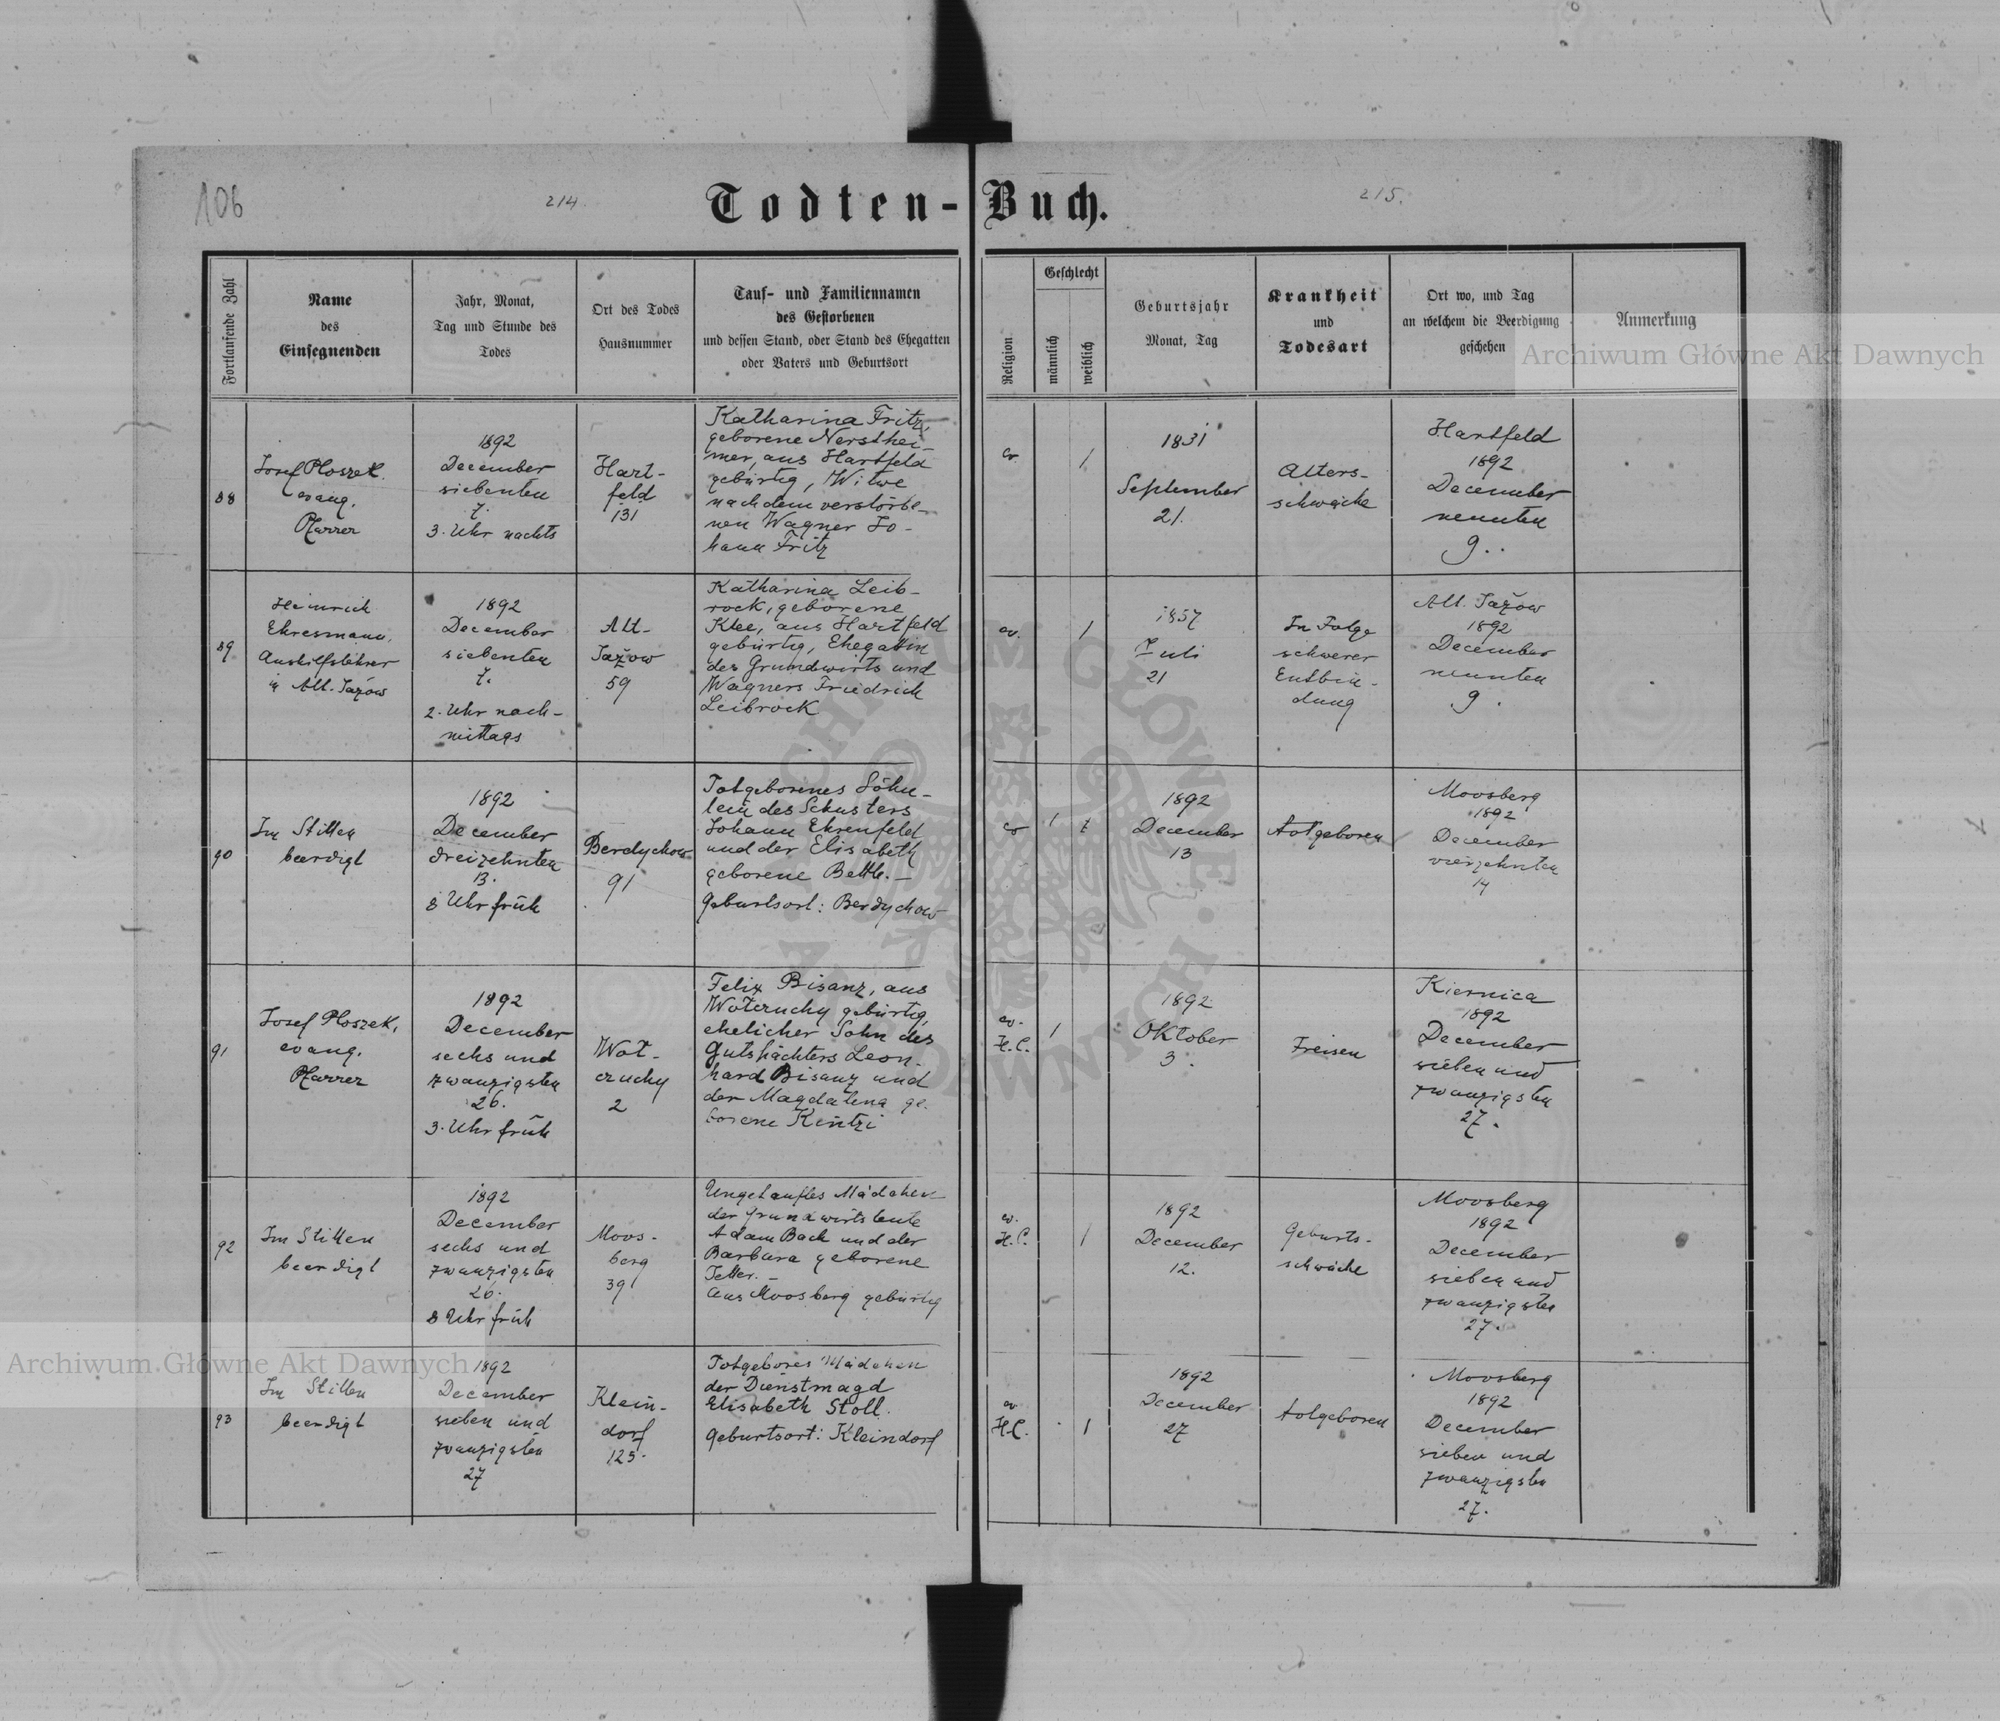 106
214
215.
Todten-Buch.
Fortlaufende Zahl
Name
des
Einsegnenden
Jahr, Monat,
Tag und Stunde des
Todes
Ort des Todes
Hausnummer
Tauf- und Familiennamen
des Gestorbenen
und dessen Stand, oder Stand des Ehegatten
oder Vaters und Geburtsort
Religion
Geschlecht
männlich
weiblich
Geburtsjahr
Monat, Tag
Krankheit
und
Todesart
Ort wo, und Tag
an welchem die Beerdigung
geschehen
Anmerkung
88
Josef Ploszek.
evang.
Pfarrer
1892
December
siebenten
7.
3. Uhr nachts
Hart-
feld
131
Katharina Fritz,
geborene Nersthei-
mer, aus Hartfeld
gebürtig, Witwe
nach dem verstorbe-
nen Wagner Jo-
hann Fritz
ev
1
1831
September
21.
Alters-
schwäche
Hartfeld
1892
December
neunten
9.
89
Heinrich
Ehresmann,
Aushilfslehrer
in Alt. Jażow
1892
December
siebenten
7.
2. Uhr nach-
mittags
Alt-
Jażow
59
Katharina Leib-
rock, geborene
Klee, aus Hartfeld
gebürtig, Ehegattin
des Grundwirts und
Wagners Friedrich
Leibrock
ev.
1
1857
Juli
21
In Folge
schwerer
Entbin-
dung
Alt. Jażow
1892
December
neunten
9.
90
Im Stillen
beerdigt
1892
December
dreizehnten
13.
8 Uhr früh
Berdychow
91
Totgeborenes Söhn-
lein des Schusters
Johann Ehrenfeld
und der Elisabeth
geborene Bettle. –
Geburtsort: Berdychow
ev
1
1892
December
13
totgeboren
Moosberg
1892
December
vierzehnten
14
91
Josef Ploszek,
evang.
Pfarrer
1892
December
sechs und
zwanzigsten
26.
3. Uhr früh
Wot-
czuchy
2
Felix Bisanz, aus
Wotczuchy gebürtig,
ehelicher Sohn des
Gutspächters Leon-
hard Bisanz und
der Magdalena ge-
borene Kintzi
ev.
H.C.
1
1892
Oktober
3.
Freisen
Kiernica
1892
December
sieben und
zwanzigsten
27.
92
Im Stillen
beerdigt
1892
December
sechs und
zwanzigsten
26.
8 Uhr früh
Moos-
berg
39
Ungetauftes Mädchen
der Grundwirtsleute
Adam Bach und der
Barbara geborene
Tetter. –
aus Moosberg gebürtig
ev.
H.C.
1
1892
December
12.
Geburts-
schwäche
Moosberg
1892
December
sieben und
zwanzigsten
27.
93
Im Stillen
beerdigt
1892
December
sieben und
zwanzigsten
27
Klein-
dorf
125.
Totgebores Mädchen
der Dienstmagd
Elisabeth Stoll.
Geburtsort: Kleindorf
ev
H.C.
1
1892
December
27
totgeboren
Moosberg
1892
December
sieben und
zwanzigsten
27.
Archiwum Główne Akt Dawnych
Archiwum Główne Akt Dawnych
ARCHIWUM GŁÓWNE AKT DAWNYCH